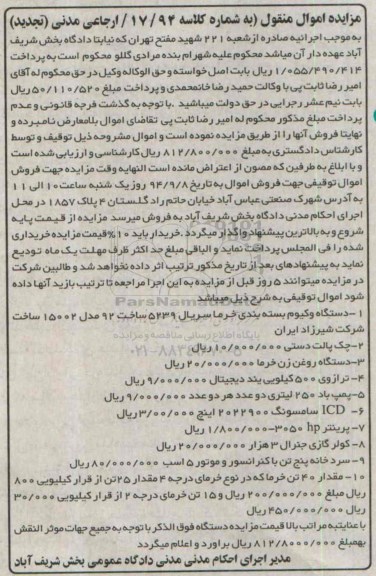 مزایده اموال منقول (به شماره کلاسه ۱۷/۹۴ / ارجاعی مدنی (تجدید)
به موجب اجرائیه صادره از شعبه ۲۲۱ شهید مفتح تهران که نیابتا دادگاه بخش شریف
آباد عهده دار آن میباشد محکوم علیه شهرام بنده مرادی گللو محکوم است به پرداخت
۱/۰۵۵/۴۹۰/۴۱۴ ریال بابت اصل خواسته و حق الوکاله وکیل در حق محکوم له آقای
امیر رضا ثابت پی با وکالت حمید رضا خانمحمدی و پرداخت مبلغ ۵۰/۱۱۰/۵۲۰ ریال
بابت نیم عشر رجرایی در حق دولت میباشید . با توجه به گذشت فرجه قانونی و عدم
پرداخت مبلغ مذکور محکوم له امیر رضا ثابت پی تقاضای اموال بلامعارض نامبرده و
نهایتا فروش آنها را از طریق مزایده نموده است و اموال مشروحه ذیل توقیف و توسط
کارشناس دادگستری به مبلغ ۸۱۲/۸۰۰/۰۰۰ ریال کارشناسی و ارزیابی شده است
و با ابلاغ به طرفین که مصون از اعتراض مانده است النهایه وقت مزایده جهت فروش
اموال توقیفی جهت فروش اموال به تاریخ ۹۴/۹/۸ روز یک شنبه ساعت ۱۰ الی ۱۱
به آدرس شهرک صنعتی عباس آباد خیابان حاتم راد گلستان ۴ پلاک ۱۸۵۷ در محل
اجرای احکام مدنی دادگاه بخش شریف آباد به فروش میرسد مزایده از قیمت پایه
شروع و به بالاترین پیشنهاد واگذار میگردد . خریدار باید ۱۰٪ قیمت مزایده خریداری
شده را فی المجلس پرداخت نماید و الباقی مبلغ حداکثر ظرف مهلت یک ماه تودیع
نماید به پیشنهادهای بعد از تاریخ مذکور ترتیب اثر داده نخواهد شد و طالبین شرکت
در مزایده میتوانند ۵ روز قبل از مزایده به این اجرا مراجعه تا ترتیب بازید آنها داده
شود اموال توقیفی به شرح ذیل میباشد
۱-دستگاه وکیوم بسته بندی خرما سریال ۵۲۳۹ ساخت ۹۲ مدل ۱۵۰۰۲ ساخت
شرکت شیرزاد ایران
۲-جک پالت دستی ۱۰/۸۰۰/۰۰۰ ریال
۳-دستگاه روغن زن خرما ۲۰/۰۰۰/۰۰۰ ریال
۴- ترازوی ۵۰۰ کیلویی یند دیجیتال ۹/۰۰۰/۰۰۰ ریال
۵-پمپ باد ۲۵۰ لیتری دو عدد هر دو عدد ۹/۰۰۰/۰۰۰ ریال
۶- ICD سامسونگ ۲۰۲۲۹۰۰ اینچ ۳/۰۰۰/۰۰۰ ریال
۷- پرینتر hp ۳۰۵۰-۱/۸۰۰/۰۰۰ ریال
۸-کولر گازی جنرال ۳ هزار ۲۰/۰۰۰/۰۰۰ ریال
۹-سردخانه پنج تن با کندانسور و موتور ۵ اسب ۸۰/۰۰۰/۰۰۰ ریال
۱۰-مقدار ۴۰ تن خرما که در نوع خرمای درجه ۴ مقدار ۲۵ تن از قرار کیلیویی ۸۰۰۰
ریال مبلغ ۲۰۰/۰۰۰/۰۰۰ ریال و ۱۵ تن خرمای درجه ۲ از قرار کیلیویی ۳۰/۰۰۰
ریال ۴۵۰/۰۰۰/۰۰۰ ریال
با عنایتبه مراتب بالا قیمت مزایده دستگاه فوق الذکر با توجه به جمیع جهات موثر النقش
بهمبلغ ۸۱۲/۸۰۰/۰۰۰ ریال براورد و اعلام میگردد
مدیر اجرای احکام مدنی مدنی دادگاه عمومی بخش شریف آباد